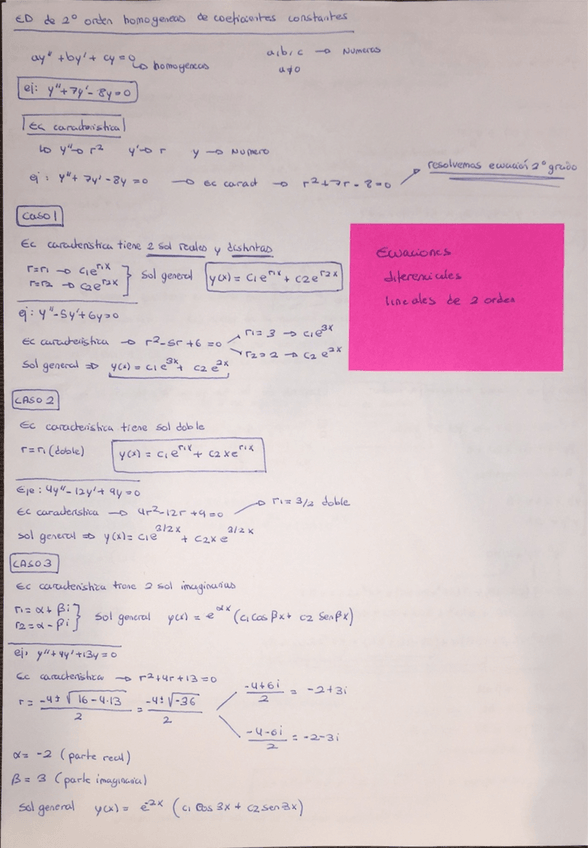 ED de 2º orden homogeneas de coeficientes constantes
ay" + by' + cy = 0 ↳ homogeneas
a,b,c → Numeros
a≠0
ej: y"+7y'-8y=0
Ec caracteristica
↳ y"→ r² y'→ r y → Numero
ej: y"+ 7y'-8y=0 → ec caract → r²+7r-8=0
resolvemos ecuación 2º grado
Caso 1
Ec caracteristica tiene 2 sol reales y distintas
r=r1 → c1e^r1x
r=r2 → c2e^r2x } Sol general y(x) = c1e^r1x + c2e^r2x
ej: y"-5y'+6y=0
Ec caracteristica → r²-5r+6=0
r1=3 → c1e^3x
r2=2 → c2 e^2x
Sol general ⇒ y(x) = c1e^3x + c2 e^2x
Ecuaciones
diferenciales
lineales de 2 orden
CASO 2
Ec caracteristica tiene sol doble
r=r1 (doble) y(x) = c1e^r1x + c2xe^r1x
Eje: 4y"-12y'+9y=0
Ec caracteristica → 4r²-12r+9=0 → r1=3/2 doble
Sol general ⇒ y(x)= c1e^3/2x + c2x e^3/2x
CASO 3
Ec caracteristica tiene 2 sol imaginarias
r1=α+βi
r2=α-βi } Sol general y(x) = e^αx (c1 cos βx + c2 senβx)
ej: y"+4y'+13y=0
Ec caracteristica → r²+4r+13=0
r = -4±√16-4·13 / 2 = -4±√-36 / 2
-4+6i / 2 = -2+3i
-4-6i / 2 = -2-3i
α= -2 (parte real)
β= 3 (parte imaginaria)
Sol general y(x) = e^-2x (c1 cos 3x + c2 sen 3x)